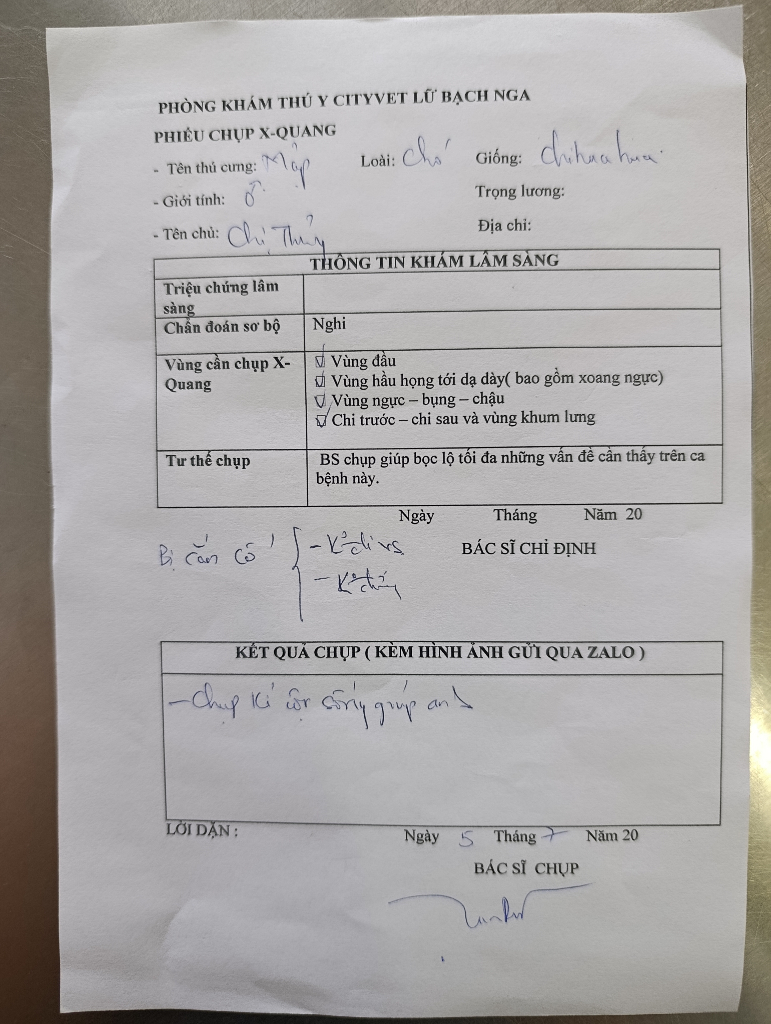 PHÒNG KHÁM THÚ Y CITYVET LỮ BẠCH NGA
PHIẾU CHỤP X-QUANG
- Tên thú cưng: Mập Loài: Chó Giống: chihuahua.
- Giới tính: ♂ Trọng lương:
- Tên chủ: Chị Thủy Địa chỉ:
THÔNG TIN KHÁM LÂM SÀNG
Triệu chứng lâm sàng
Chẩn đoán sơ bộ Nghi
Vùng cần chụp X-Quang
Vùng đầu
Vùng hầu họng tới dạ dày( bao gồm xoang ngực)
Vùng ngực – bụng – chậu
Chi trước – chi sau và vùng khum lưng
Tư thế chụp BS chụp giúp bọc lộ tối đa những vấn đề cần thấy trên ca
bệnh này.
Ngày Tháng Năm 20
BÁC SĨ CHỈ ĐỊNH
Bị cắn cổ
KẾT QUẢ CHỤP ( KÈM HÌNH ẢNH GỬI QUA ZALO )
- Chụp kĩ cột sống giúp
LỜI DẶN :
Ngày 5 Tháng 7 Năm 20
BÁC SĨ CHỤP